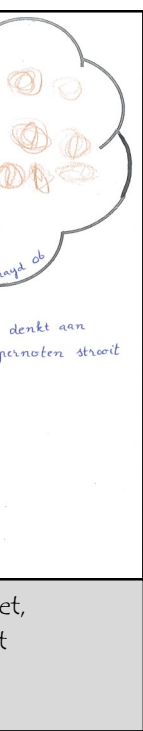 denkt aan
pernoten strooit
et,
t